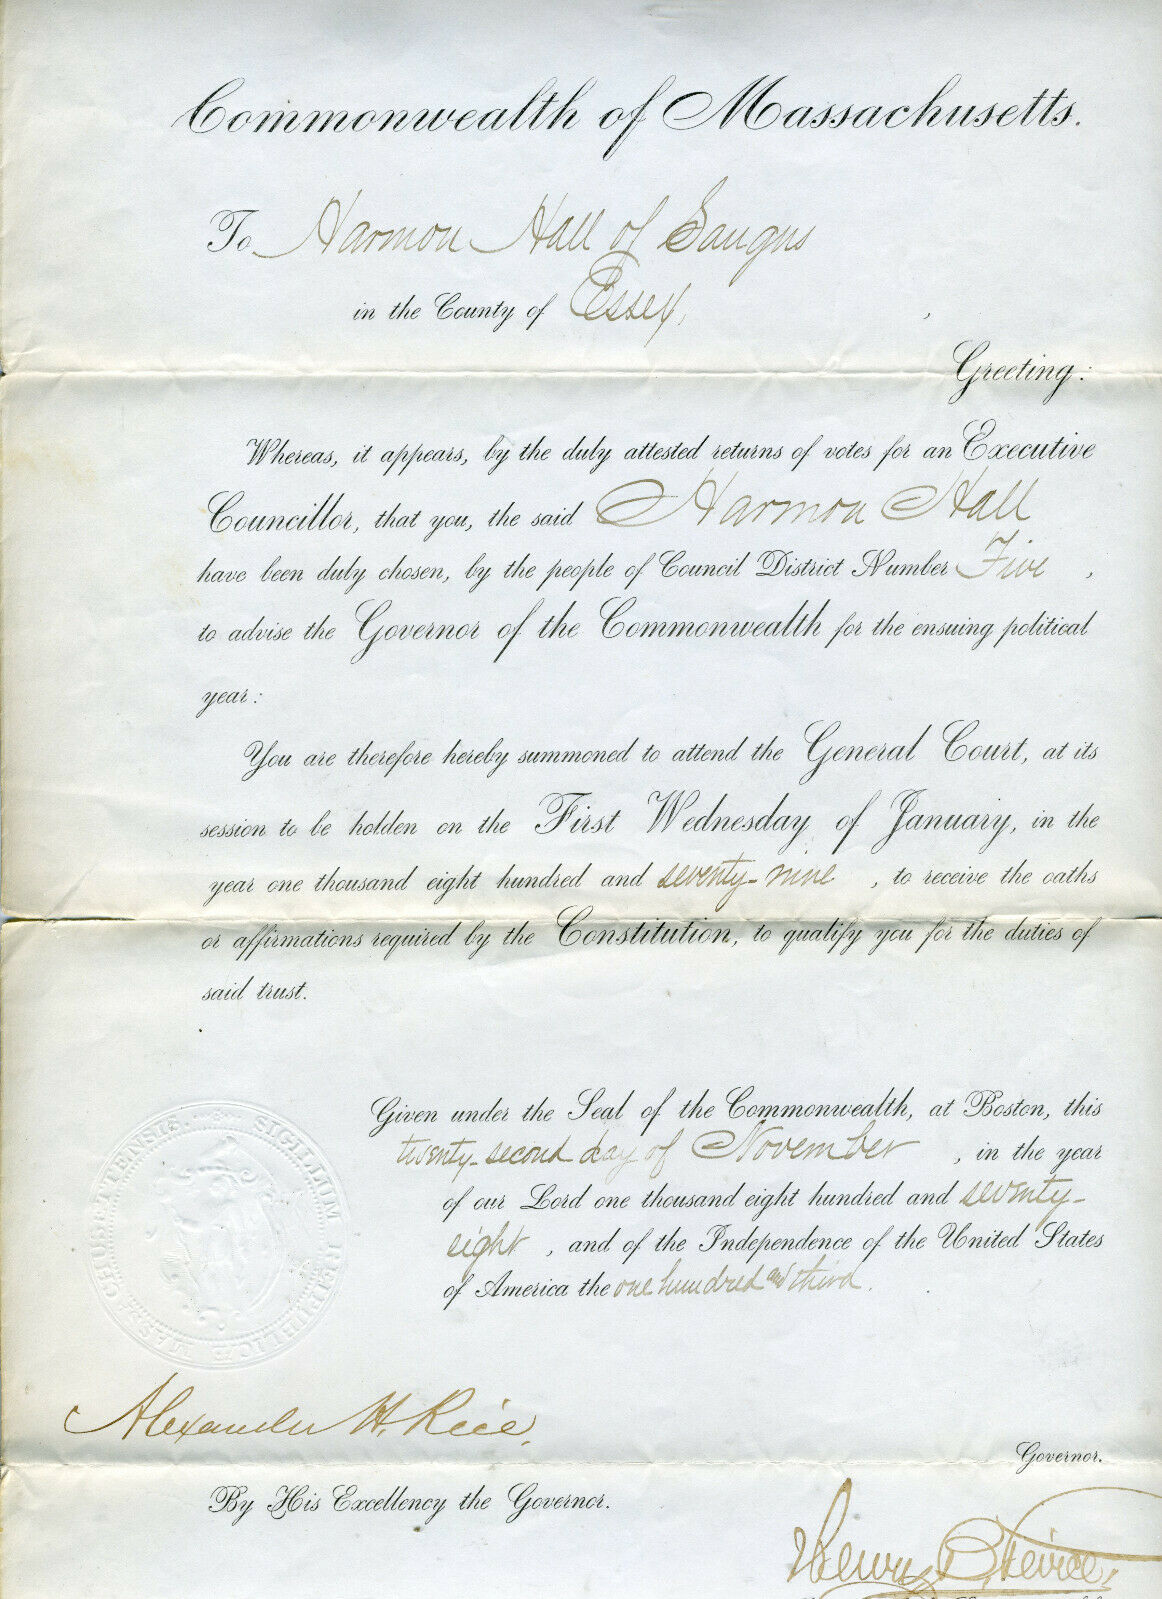 Commonwealth of Massachusetts.
To Harmon Hall of Saugus
in the County of Essex,
Greeting:
Whereas, it appears, by the duly attested returns of votes for an Executive
Councillor, that you, the said Harmon Hall
have been duly chosen, by the people of Council District Number Five ,
to advise the Governor of the Commonwealth for the ensuing political
year:
You are therefore hereby summoned to attend the General Court, at its
session to be holden on the First Wednesday of January, in the
year one thousand eight hundred and seventy-nine , to receive the oaths
or affirmations required by the Constitution, to qualify you for the duties of
said trust.
Given under the Seal of the Commonwealth, at Boston, this
twenty-second day of November , in the year
of our Lord one thousand eight hundred and seventy-
eight , and of the Independence of the United States
of America the one hundred and third.
SIGILLUM REIPUBLICÆ MASSACHUSETTENSIS
Alexander H. Rice,
Governor.
By His Excellency the Governor.
Henry B. Peirce,